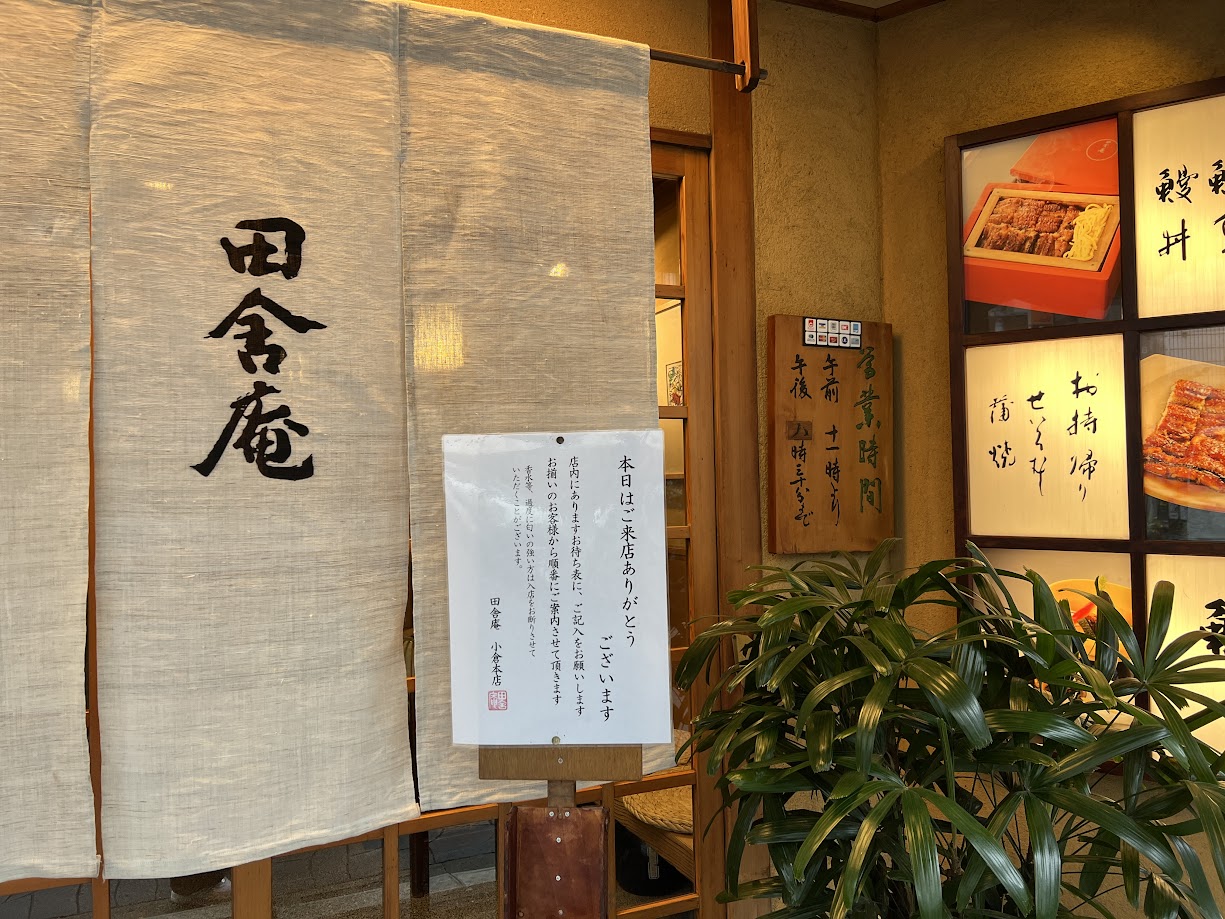 田舎庵
本日はご来店ありがとう
ございます
店内にありますお待ち表に、ご記入をお願いします
お揃いのお客様から順番にご案内させて頂きます
香水等、過度に匂いの強い方は入店をお断りさせて
いただくことがございます。
田舎庵 小倉本店
営業時間
午前 十一時より
午後 八時三十分まで
鰻丼
お持帰り
せいろむし
蒲焼